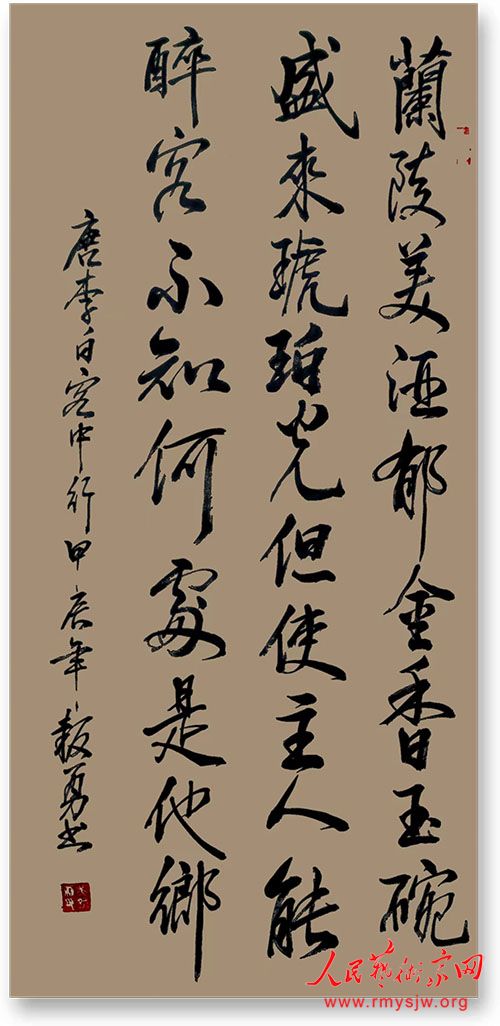 蘭陵美酒郁金香玉碗
盛來琥珀光但使主人能
醉客不知何處是他鄉
唐李白客中行甲辰年勇书
人民藝術家网
www.rmysjw.org